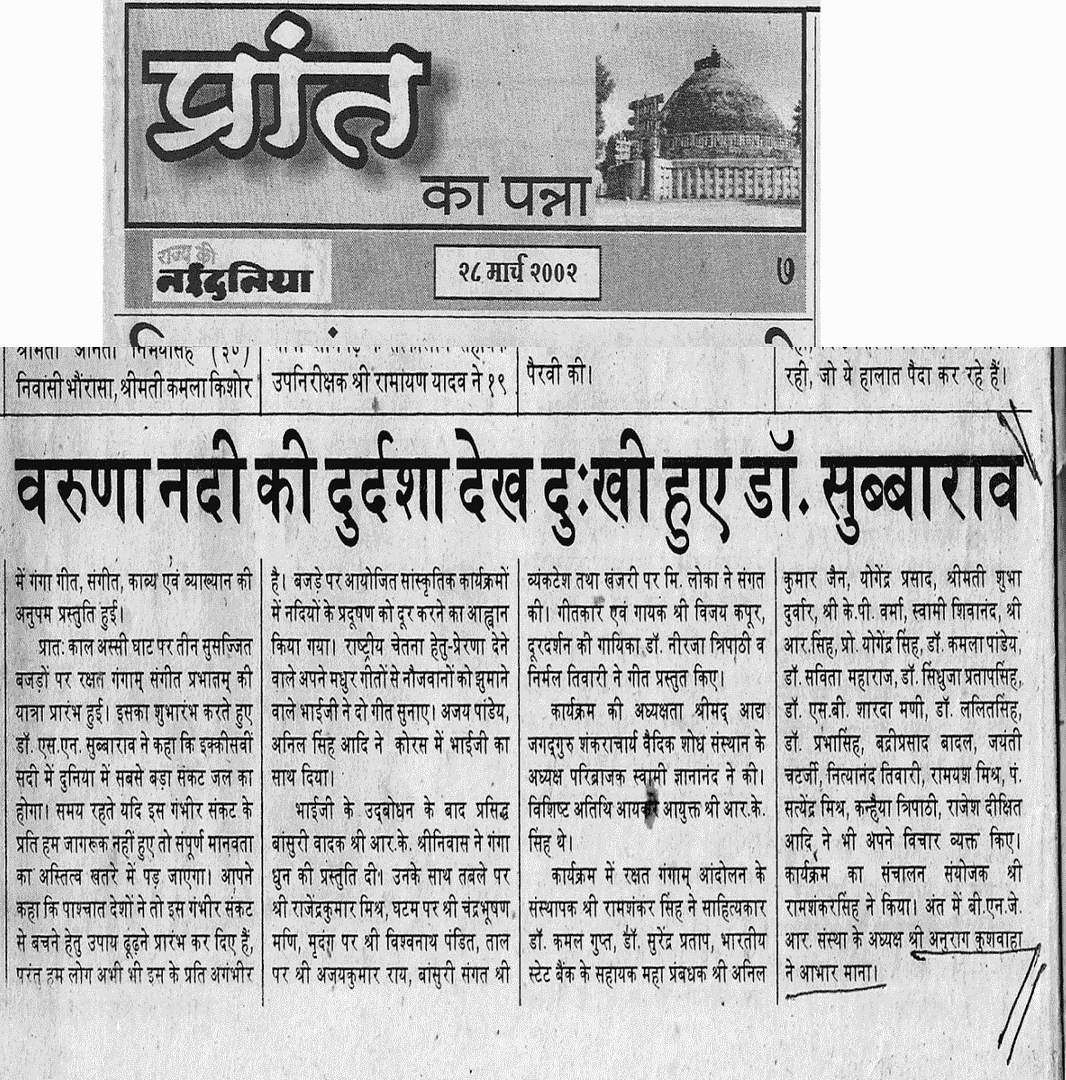 प्रांत
का पन्ना
राज्य की
नईदुनिया
२८ मार्च २००२
७
निवासी भौंरासा, श्रीमती कमला किशोर
उपनिरीक्षक श्री रामायण यादव ने १९
पैरवी की।
रही, जो ये हालात पैदा कर रहे हैं।
वरुणा नदी की दुर्दशा देख दुःखी हुए डॉ. सुब्बाराव
में गंगा गीत, संगीत, काव्य एवं व्याख्यान की
अनुपम प्रस्तुति हुई।
प्रातः काल अस्सी घाट पर तीन सुसज्जित
बजड़ों पर रक्षत गंगाम् संगीत प्रभातम् की
यात्रा प्रारंभ हुई। इसका शुभारंभ करते हुए
डॉ. एस.एन. सुब्बाराव ने कहा कि इक्कीसवीं
सदी में दुनिया में सबसे बड़ा संकट जल का
होगा। समय रहते यदि इस गंभीर संकट के
प्रति हम जागरूक नहीं हुए तो संपूर्ण मानवता
का अस्तित्व खतरे में पड़ जाएगा। आपने
कहा कि पाश्चात देशों ने तो इस गंभीर संकट
से बचने हेतु उपाय ढूंढ़ने प्रारंभ कर दिए हैं,
परंतु हम लोग अभी भी इस के प्रति अगंभीर
है। बजड़े पर आयोजित सांस्कृतिक कार्यक्रमों
में नदियों के प्रदूषण को दूर करने का आह्वान
किया गया। राष्ट्रीय चेतना हेतु-प्रेरणा देने
वाले अपने मधुर गीतों से नौजवानों को झुमाने
वाले भाईजी ने दो गीत सुनाए। अजय पांडेय,
अनिल सिंह आदि ने कोरस में भाईजी का
साथ दिया।
भाईजी के उद्बोधन के बाद प्रसिद्ध
बांसुरी वादक श्री आर.के. श्रीनिवास ने गंगा
धुन की प्रस्तुति दी। उनके साथ तबले पर
श्री राजेंद्रकुमार मिश्र, घटम पर श्री चंद्रभूषण
मणि, मृदंग पर श्री विश्वनाथ पंडित, ताल
पर श्री अजयकुमार राय, बांसुरी संगत श्री
व्यंकटेश तथा खंजरी पर मि. लोका ने संगत
की। गीतकार एवं गायक श्री विजय कपूर,
दूरदर्शन की गायिका डॉ. नीरजा त्रिपाठी व
निर्मल तिवारी ने गीत प्रस्तुत किए।
कार्यक्रम की अध्यक्षता श्रीमद् आद्य
जगद्गुरु शंकराचार्य वैदिक शोध संस्थान के
अध्यक्ष परिब्राजक स्वामी ज्ञानानंद ने की।
विशिष्ट अतिथि आयकर आयुक्त श्री आर.के.
सिंह थे।
कार्यक्रम में रक्षत गंगाम् आंदोलन के
संस्थापक श्री रामशंकर सिंह ने साहित्यकार
डॉ. कमल गुप्त, डॉ. सुरेंद्र प्रताप, भारतीय
स्टेट बैंक के सहायक महा प्रंबधक श्री अनिल
कुमार जैन, योगेंद्र प्रसाद, श्रीमती शुभा
दुर्वार, श्री के.पी. वर्मा, स्वामी शिवानंद, श्री
आर.सिंह, प्रो. योगेंद्र सिंह, डॉ. कमला पांडेय,
डॉ. सविता महाराज, डॉ. सिंधुजा प्रतापसिंह,
डॉ. एस.बी. शारदा मणी, डॉ. ललितसिंह,
डॉ. प्रभासिंह, बद्रीप्रसाद बादल, जयंती
चटर्जी, नित्यानंद तिवारी, रामयश मिश्र, पं.
सत्येंद्र मिश्र, कन्हैया त्रिपाठी, राजेश दीक्षित
आदि ने भी अपने विचार व्यक्त किए।
कार्यक्रम का संचालन संयोजक श्री
रामशंकरसिंह ने किया। अंत में बी.एन.जे.
आर. संस्था के अध्यक्ष श्री अनुराग कुशवाहा
ने आभार माना।